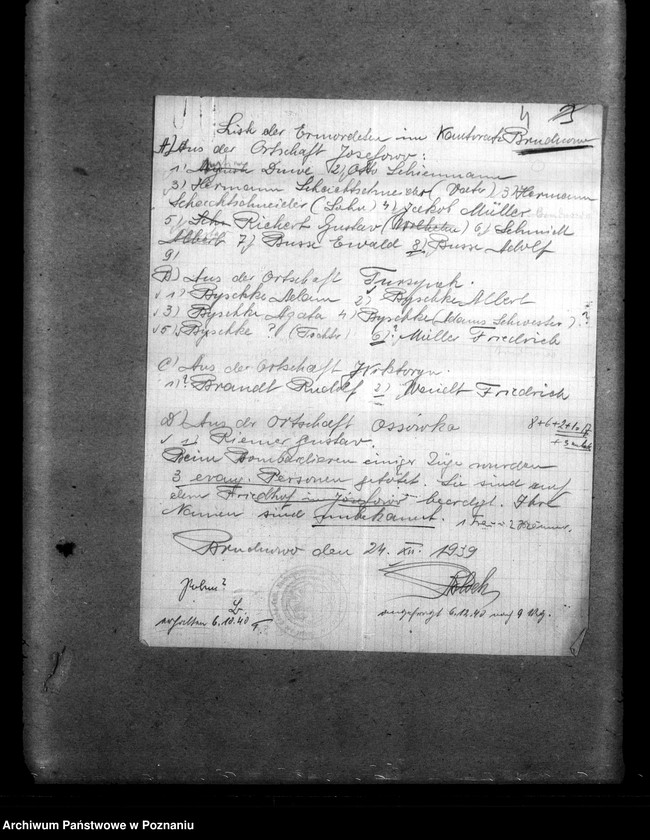 4 25
Liste der Ermordeten im Kantorate Bruchowo
A) Aus der Ortschaft Josefowo:
1) Duwe 2) Otto Schienmann
3) Hermann Schachtschneider (Vater) 3) Hermann
Schachtschneider (Sohn) 4) Jakob Müller
5) Richert Gustav 6) Schmidt
Albert 7) Busse Ewald 8) Busse Adolf
9)
B) Aus der Ortschaft
1) Byschke Adam 2) Byschke Albert
3) Byschke Agata 4) Byschke (Adams Schwester) ?
5) Byschke ? (Tochter) 6) ? Müller Friedrich
C) Aus der Ortschaft Wiktoryn.
1) ? Brandt Rudolf 2) Wendt Friedrich
D) Aus der Ortschaft Ossówka
8+6+2+1=17
1) Riemer Gustav.
Beim Bombardieren einiger Züge wurden
3 evang. Personen getötet. Sie sind auf
dem Friedhof in Josefowo beerdigt. Ihre
Namen sind unbekannt.
Bruchowo den 24. XII. 1939
erhalten 6.10.40
Archiwum Państwowe w Poznaniu